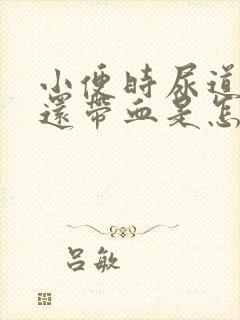 小便時尿道
還帶血是怎
呂敏